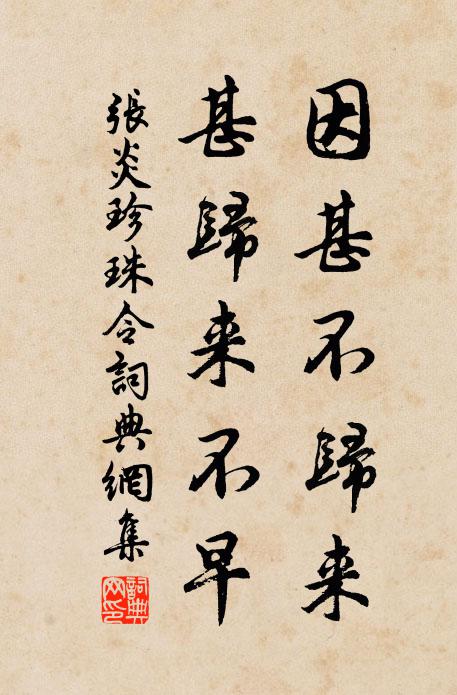 因甚不歸来
甚歸来不早
張炎珍珠令詞典網集
詞典網印